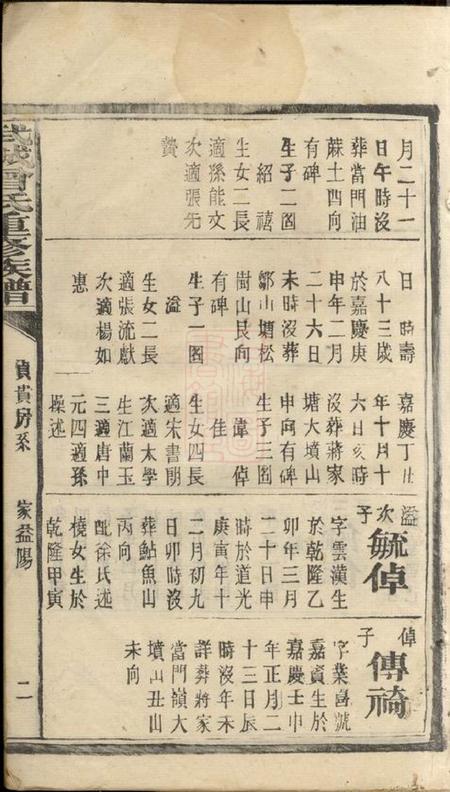 月二十一
日午時沒
葬當門油
蔴土四向
有碑
生子二
紹禧
生女二長
適孫能文
次適張先
贊
日 時壽
八十三歲
於嘉慶庚
申年二月
二十六日
未時沒葬
鄒山塘松
樹山艮向
有碑
生子一
溢
生女二長
適張流獻
次適楊如
惠
嘉慶丁丑
年十月十
六日亥時
沒葬蔣家
塘大墳山
申向有碑
生子三
佳 偉 倬
生女四長
適宋書朋
次適太學
生江蘭玉
三適唐中
元四適孫
操述
溢次子
毓倬
字雲漢生
於乾隆乙
卯年三月
二十日申
時於道光
庚寅年十
二月初九
日卯時沒
葬鮎魚山
丙向
配徐氏述
橈女生於
乾隆甲寅
倬子
傳禕
字業喜號
嘉賓生於
嘉慶壬申
年正月二
十三日辰
時沒年未
詳葬蔣家
當門嶺大
墳山丑山
未向
武城曾氏重修族譜
貞貴房系
家益陽
二